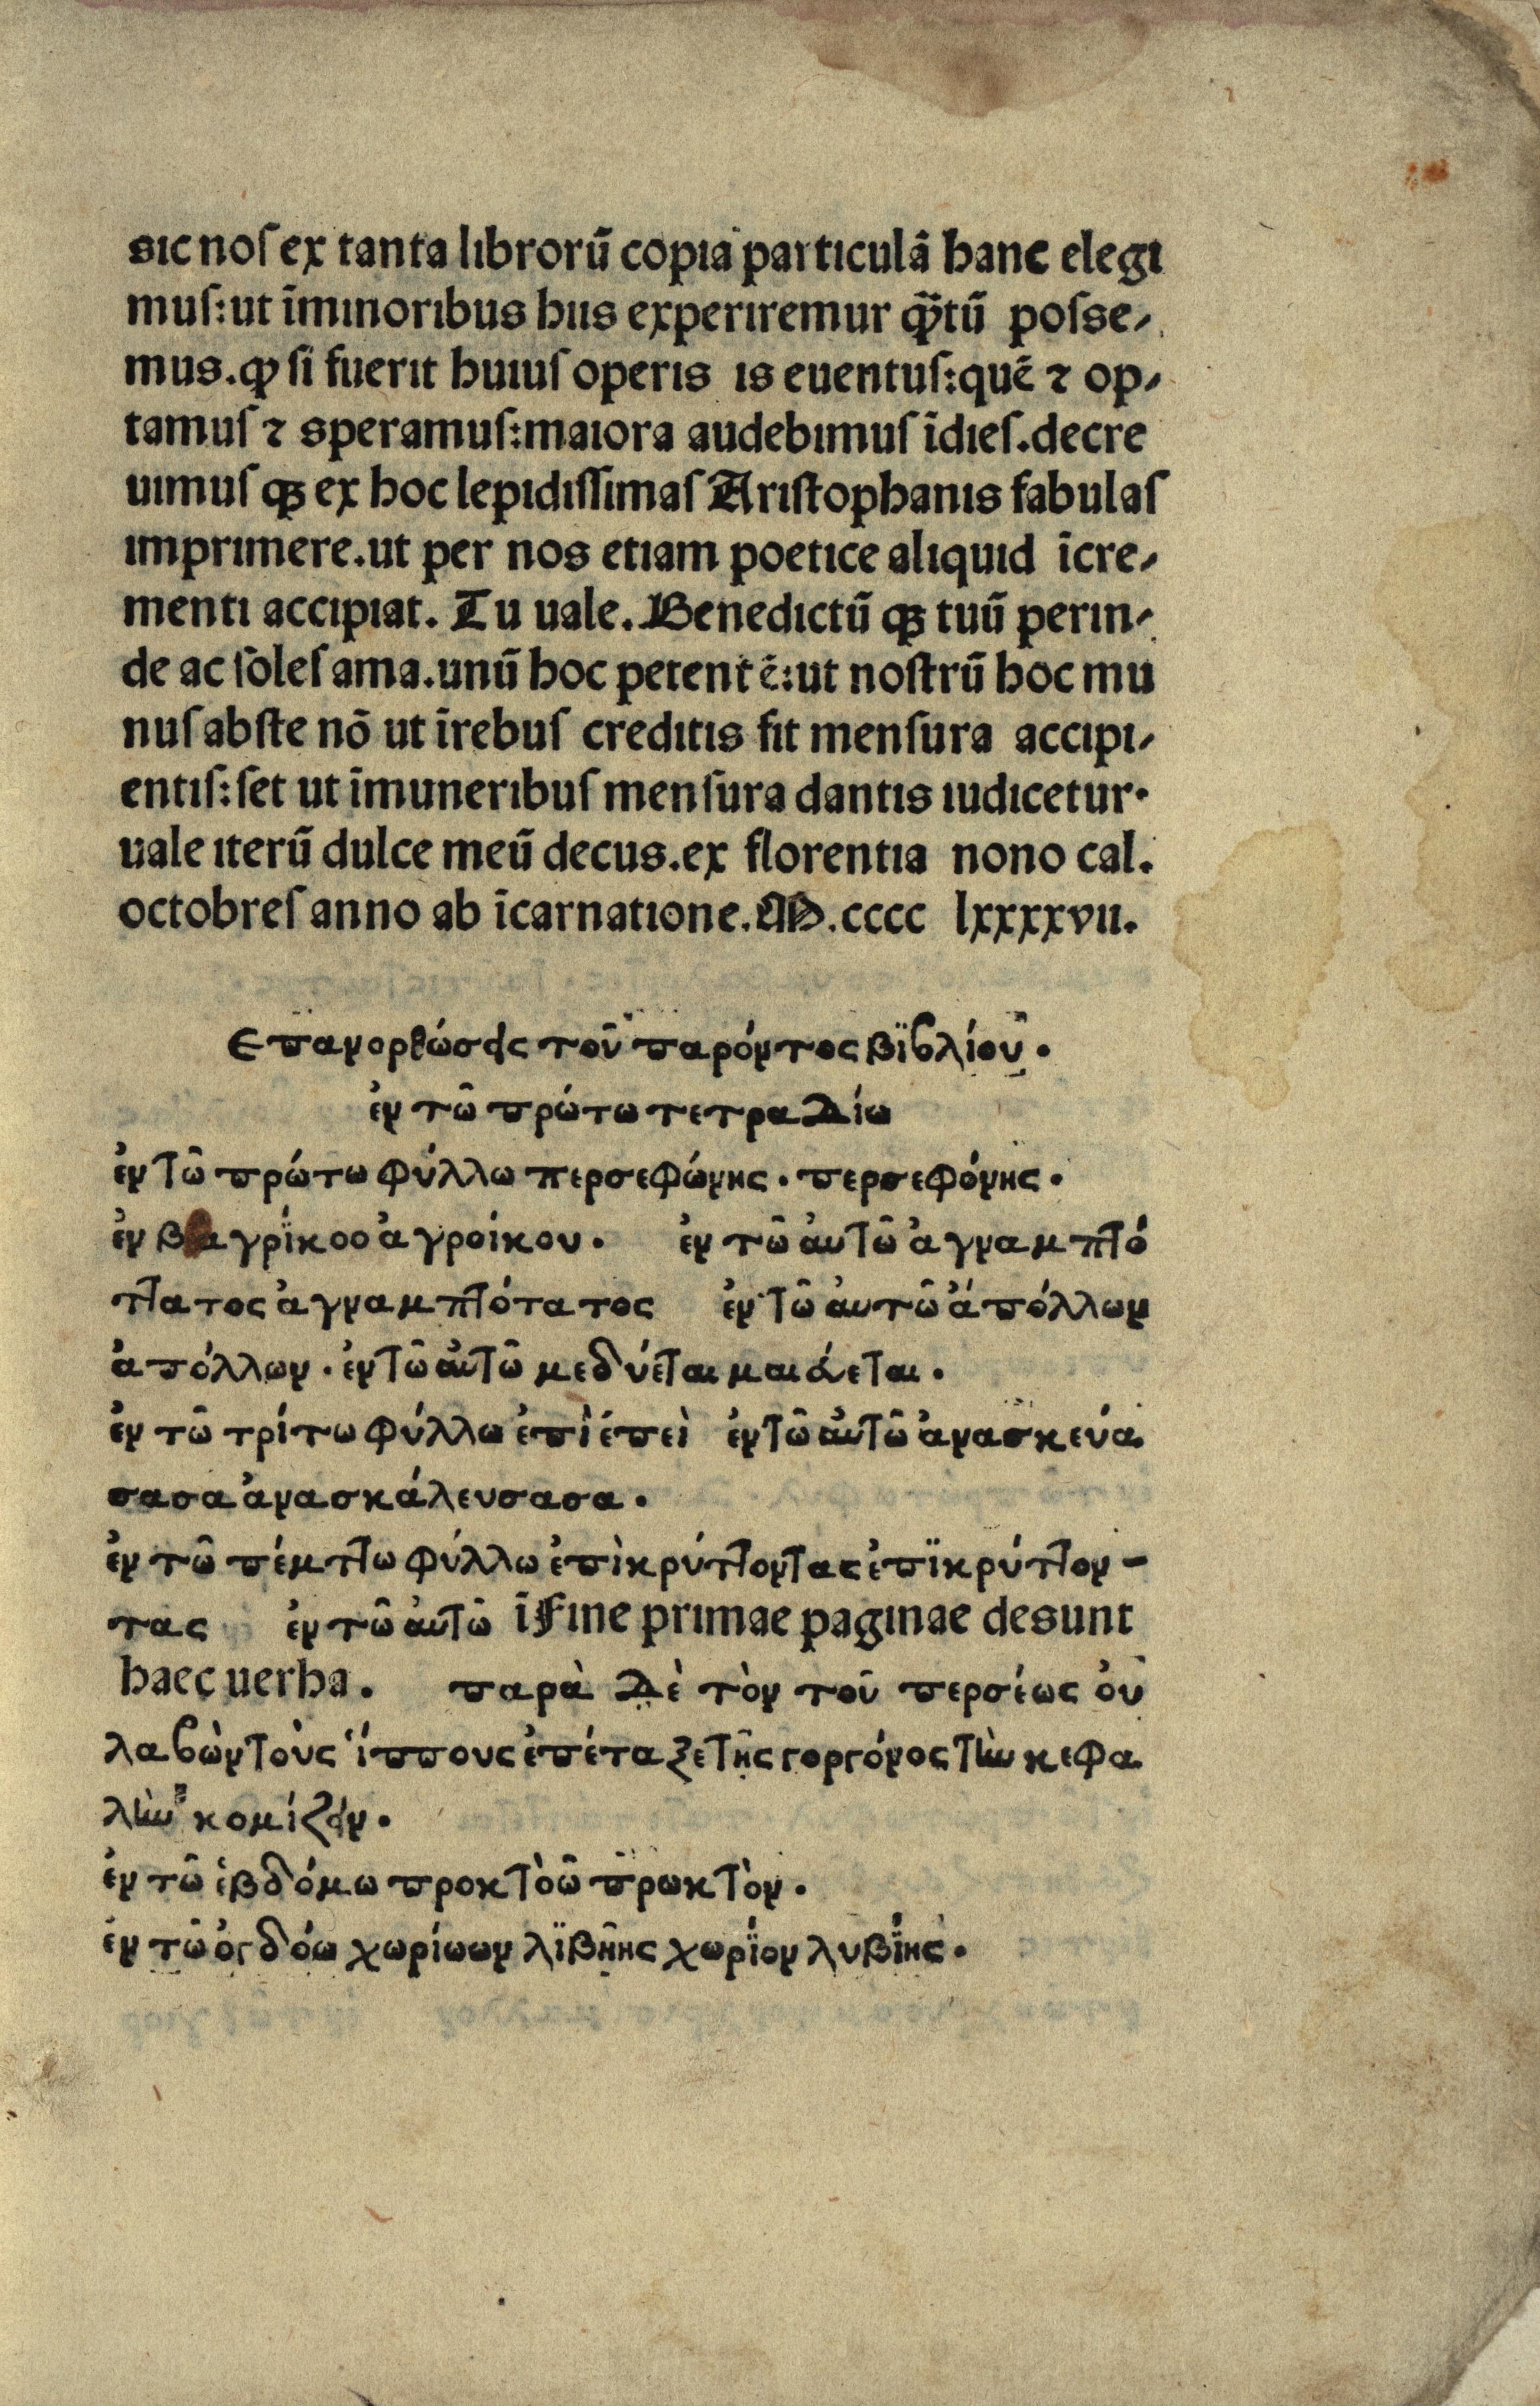 sic nos ex tanta librorū copia particulā hanc elegi
mus:ut īminoribus hiis experiremur q̄tū posse-
mus.ꝙ si fuerit huius operis is euentus:quē ⁊ op-
tamus ⁊ speramus:maiora audebimus īdies.decre
uimus qꝫ ex hoc lepidissimas Aristophanis fabulas
imprimere.ut per nos etiam poetice aliquid īcre-
menti accipiat. Tu uale. Benedictū qꝫ tuū perin-
de ac soles ama.unū hoc petentē:ut nostrū hoc mu
nus abste nō ut īrebus creditis fit mensura accipi-
entis:set ut īmuneribus mensura dantis iudicetur.
uale iterū dulce meū decus.ex florentia nono cal.
octobres anno ab īcarnatione.M.cccc lxxxxvii.
Επανορθώσεις τοῦ παρόντος βϊβλίου.
ἐν τῶ πρώτω τετραδίω
ἐν τῶ πρώτω φύλλω περσεφώνης. περσεφόνης.
ἐν β αγρίκοο ἀγροίκου. ἐν τῶ ἀυτῶ ἀγναμπτό
πτατος ἀγναμπτότατος ἐν τῶ ἀυτῶ ἀπόλλων
ἀπόλλων. ἐν τῶ ἀυτῶ μεδνύεται μαιάνεται.
ἐν τῶ τρίτω φύλλω ἐπὶ ἐπεὶ ἐν τῶ ἀυτῶ ἀνασκευά
σασα ἀνασκάλευσασα.
ἐν τῶ πέμπτω φύλλω ἐπὶκρύπτοντας ἐπϊκρύπτον-
τας ἐν τῶ ἀυτῶ īFine primae paginae desunt
haec uerba. παρὰ δὲ τὸν τοῦ περσέως ὁυ
λαβὼν τοὺς ἵππους ἐπέταξε τῆς γοργόνος τὴν κεφα
λὴν κομίζειν.
ἐν τῶ ἑβδόμω προκτὸῶ πρωκτὸν.
ἐν τῶ ὀγδόω χωρίωων λϊβήης χωρίον λυβϊης.